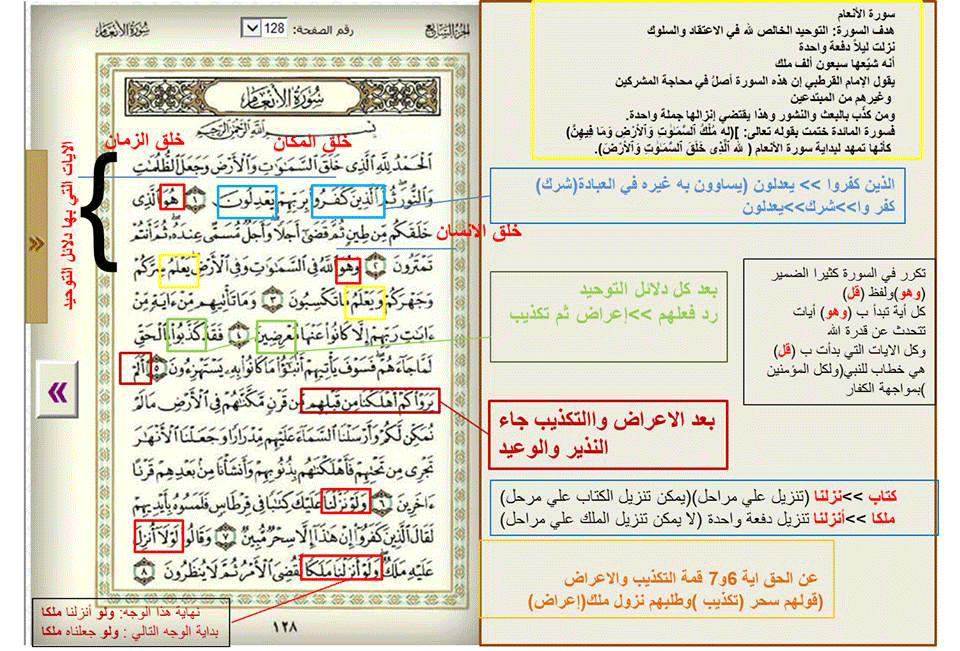 سورة الأنعام
هدف السورة: التوحيد الخالص لله في الاعتقاد والسلوك
نزلت ليلاً دفعة واحدة
أنه شيّعها سبعون ألف ملك
يقول الإمام القرطبي إن هذه السورة أصلٌ في محاجة المشركين
وغيرهم من المبتدعين
ومن كذّب بالبعث والنشور وهذا يقتضي إنزالها جملة واحدة.
فسورة المائدة ختمت بقوله تعالى: ](لِلَّهِ مُلْكُ السَّمَاوَاتِ وَالْأَرْضِ وَمَا فِيهِنَّ)
كأنها تمهد لبداية سورة الأنعام ( لله الَّذِي خَلَقَ السَّمَاوَاتِ وَالْأَرْضَ).
الذين كفروا >> يعدلون (يساوون به غيره في العبادة(شرك)
كفر وا>>شرك>>يعدلون
تكرر في السورة كثيرا الضمير
(وهو)ولفظ (قل)
كل أية تبدأ ب (وهو) أيات
تتحدث عن قدرة الله
وكل الايات التي بدأت ب (قل)
هي خطاب للنبي(ولكل المؤمنين
)بمواجهة الكفار
بعد كل دلائل التوحيد
رد فعلهم >>إعراض ثم تكذيب
بعد الاعراض واالتكذيب جاء
النذير والوعيد
كتاب >>نزلنا (تنزيل علي مراحل)(يمكن تنزيل الكتاب علي مرحل)
ملكا >>أنزلنا تنزيل دفعة واحدة (لا يمكن تنزيل الملك علي مراحل)
عن الحق اية 6و7 قمة التكذيب والاعراض
(قولهم سحر (تكذيب )وطلبهم نزول ملك(إعراض)
رقم الصفحة: 128
الجزء السابع
سورة الأنعام
سورة الأنعام
بسم الله الرحمن الرحيم
خلق المكان
خلق الزمان
الايات التي بها دلائل التوحيد
الْحَمْدُ لِلَّهِ الَّذِي خَلَقَ السَّمَاوَاتِ وَالْأَرْضَ وَجَعَلَ الظُّلُمَاتِ
وَالنُّورَ ثُمَّ الَّذِينَ كَفَرُوا بِرَبِّهِمْ يَعْدِلُونَ ١ هُوَ الَّذِي
خَلَقَكُم مِّن طِينٍ ثُمَّ قَضَىٰ أَجَلًا وَأَجَلٌ مُّسَمًّى عِندَهُ ثُمَّ أَنتُمْ
خلق الانسان
تَمْتَرُونَ ٢ وَهُوَ اللَّهُ فِي السَّمَاوَاتِ وَفِي الْأَرْضِ يَعْلَمُ سِرَّكُمْ
وَجَهْرَكُمْ وَيَعْلَمُ مَا تَكْسِبُونَ ٣ وَمَا تَأْتِيهِم مِّنْ آيَةٍ مِّنْ
آيَاتِ رَبِّهِمْ إِلَّا كَانُوا عَنْهَا مُعْرِضِينَ ٤ فَقَدْ كَذَّبُوا بِالْحَقِّ
لَمَّا جَاءَهُمْ فَسَوْفَ يَأْتِيهِمْ أَنبَاءُ مَا كَانُوا بِهِ يَسْتَهْزِءُونَ ٥ أَلَمْ
يَرَوْا كَمْ أَهْلَكْنَا مِن قَبْلِهِم مِّن قَرْنٍ مَّكَّنَّاهُمْ فِي الْأَرْضِ مَا لَمْ
نُمَكِّن لَّكُمْ وَأَرْسَلْنَا السَّمَاءَ عَلَيْهِم مِّدْرَارًا وَجَعَلْنَا الْأَنْهَارَ
تَجْرِي مِن تَحْتِهِمْ فَأَهْلَكْنَاهُم بِذُنُوبِهِمْ وَأَنشَأْنَا مِن بَعْدِهِمْ قَرْنًا
آخَرِينَ ٦ وَلَوْ نَزَّلْنَا عَلَيْكَ كِتَابًا فِي قِرْطَاسٍ فَلَمَسُوهُ بِأَيْدِيهِمْ
لَقَالَ الَّذِينَ كَفَرُوا إِنْ هَٰذَا إِلَّا سِحْرٌ مُّبِينٌ ٧ وَقَالُوا لَوْلَا أُنزِلَ
عَلَيْهِ مَلَكٌ وَلَوْ أَنزَلْنَا مَلَكًا لَّقُضِيَ الْأَمْرُ ثُمَّ لَا يُنظَرُونَ ٨
١٢٨
نهاية هذا الوجه: ولو أنزلنا ملكا
بداية الوجه التالي : ولو جعلناه ملكا